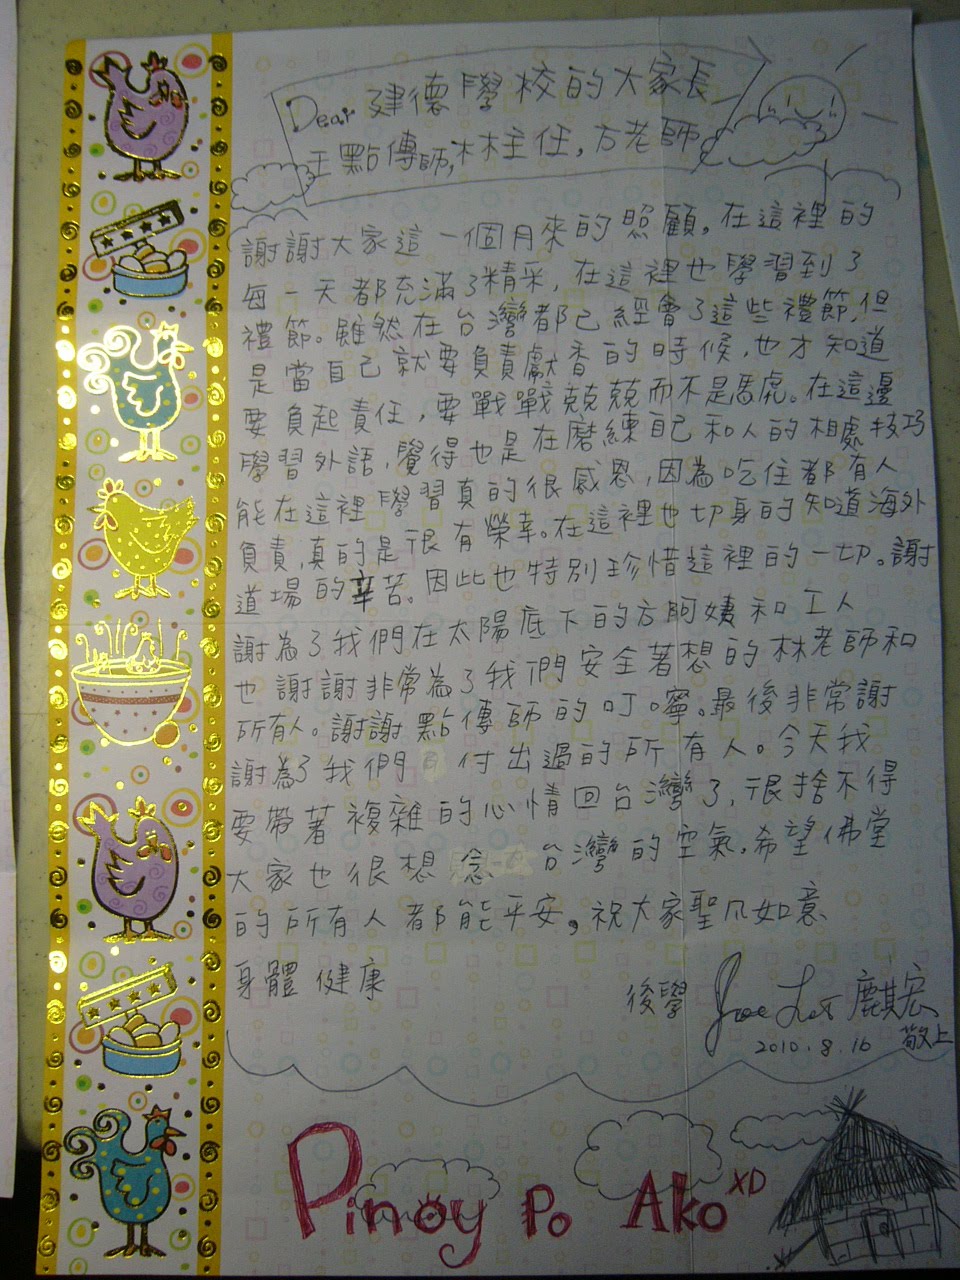 Dear 建德學校的大家長
王點傳師,林主任,方老師
謝謝大家這一個月來的照顧。在這裡的
每一天都充滿了精采,在這裡也學習到了
禮節。雖然在台灣都已經會了這些禮節,但
是當自己就要負責獻香的時候,也才知道
要負起責任,要戰戰兢兢而不是馬虎。在這邊
學習外語,覺得也是在磨練自己和人的相處技巧
能在這裡學習真的很感恩,因為吃住都有人
負責,真的是很有榮幸。在這裡也切身的知道海外
道場的辛苦。因此也特別珍惜這裡的一切。謝
謝為了我們在太陽底下的方阿姨和工人
也謝謝非常為了我們安全著想的林老師和
所有人。謝謝點傳師的叮嚀。最後非常謝
謝為了我們付出過的所有人。今天我
要帶著複雜的心情回台灣了,很捨不得
大家也很想念台灣的空氣。希望佛堂
的所有人都能平安。祝大家聖凡如意
身體健康
後學 麒宏
2010.8.16 敬上
Pinoy Po Ako XD